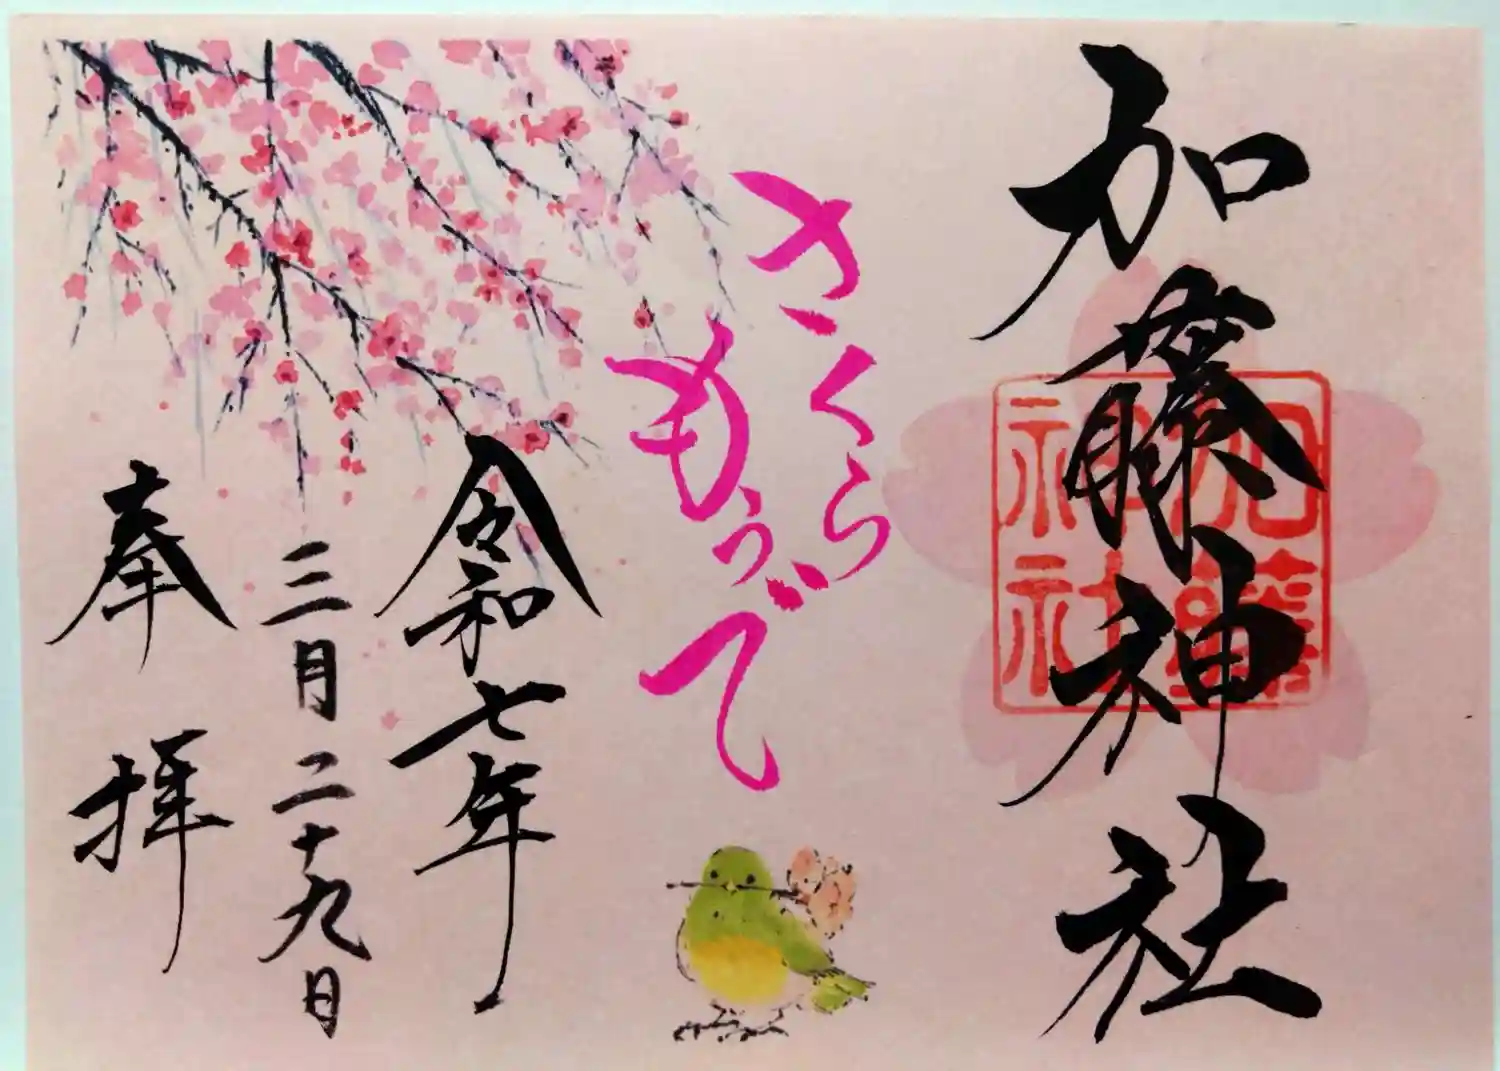 加藤神社
加藤
神社
さくら
もうで
令和七年
三月二十九日
奉拝